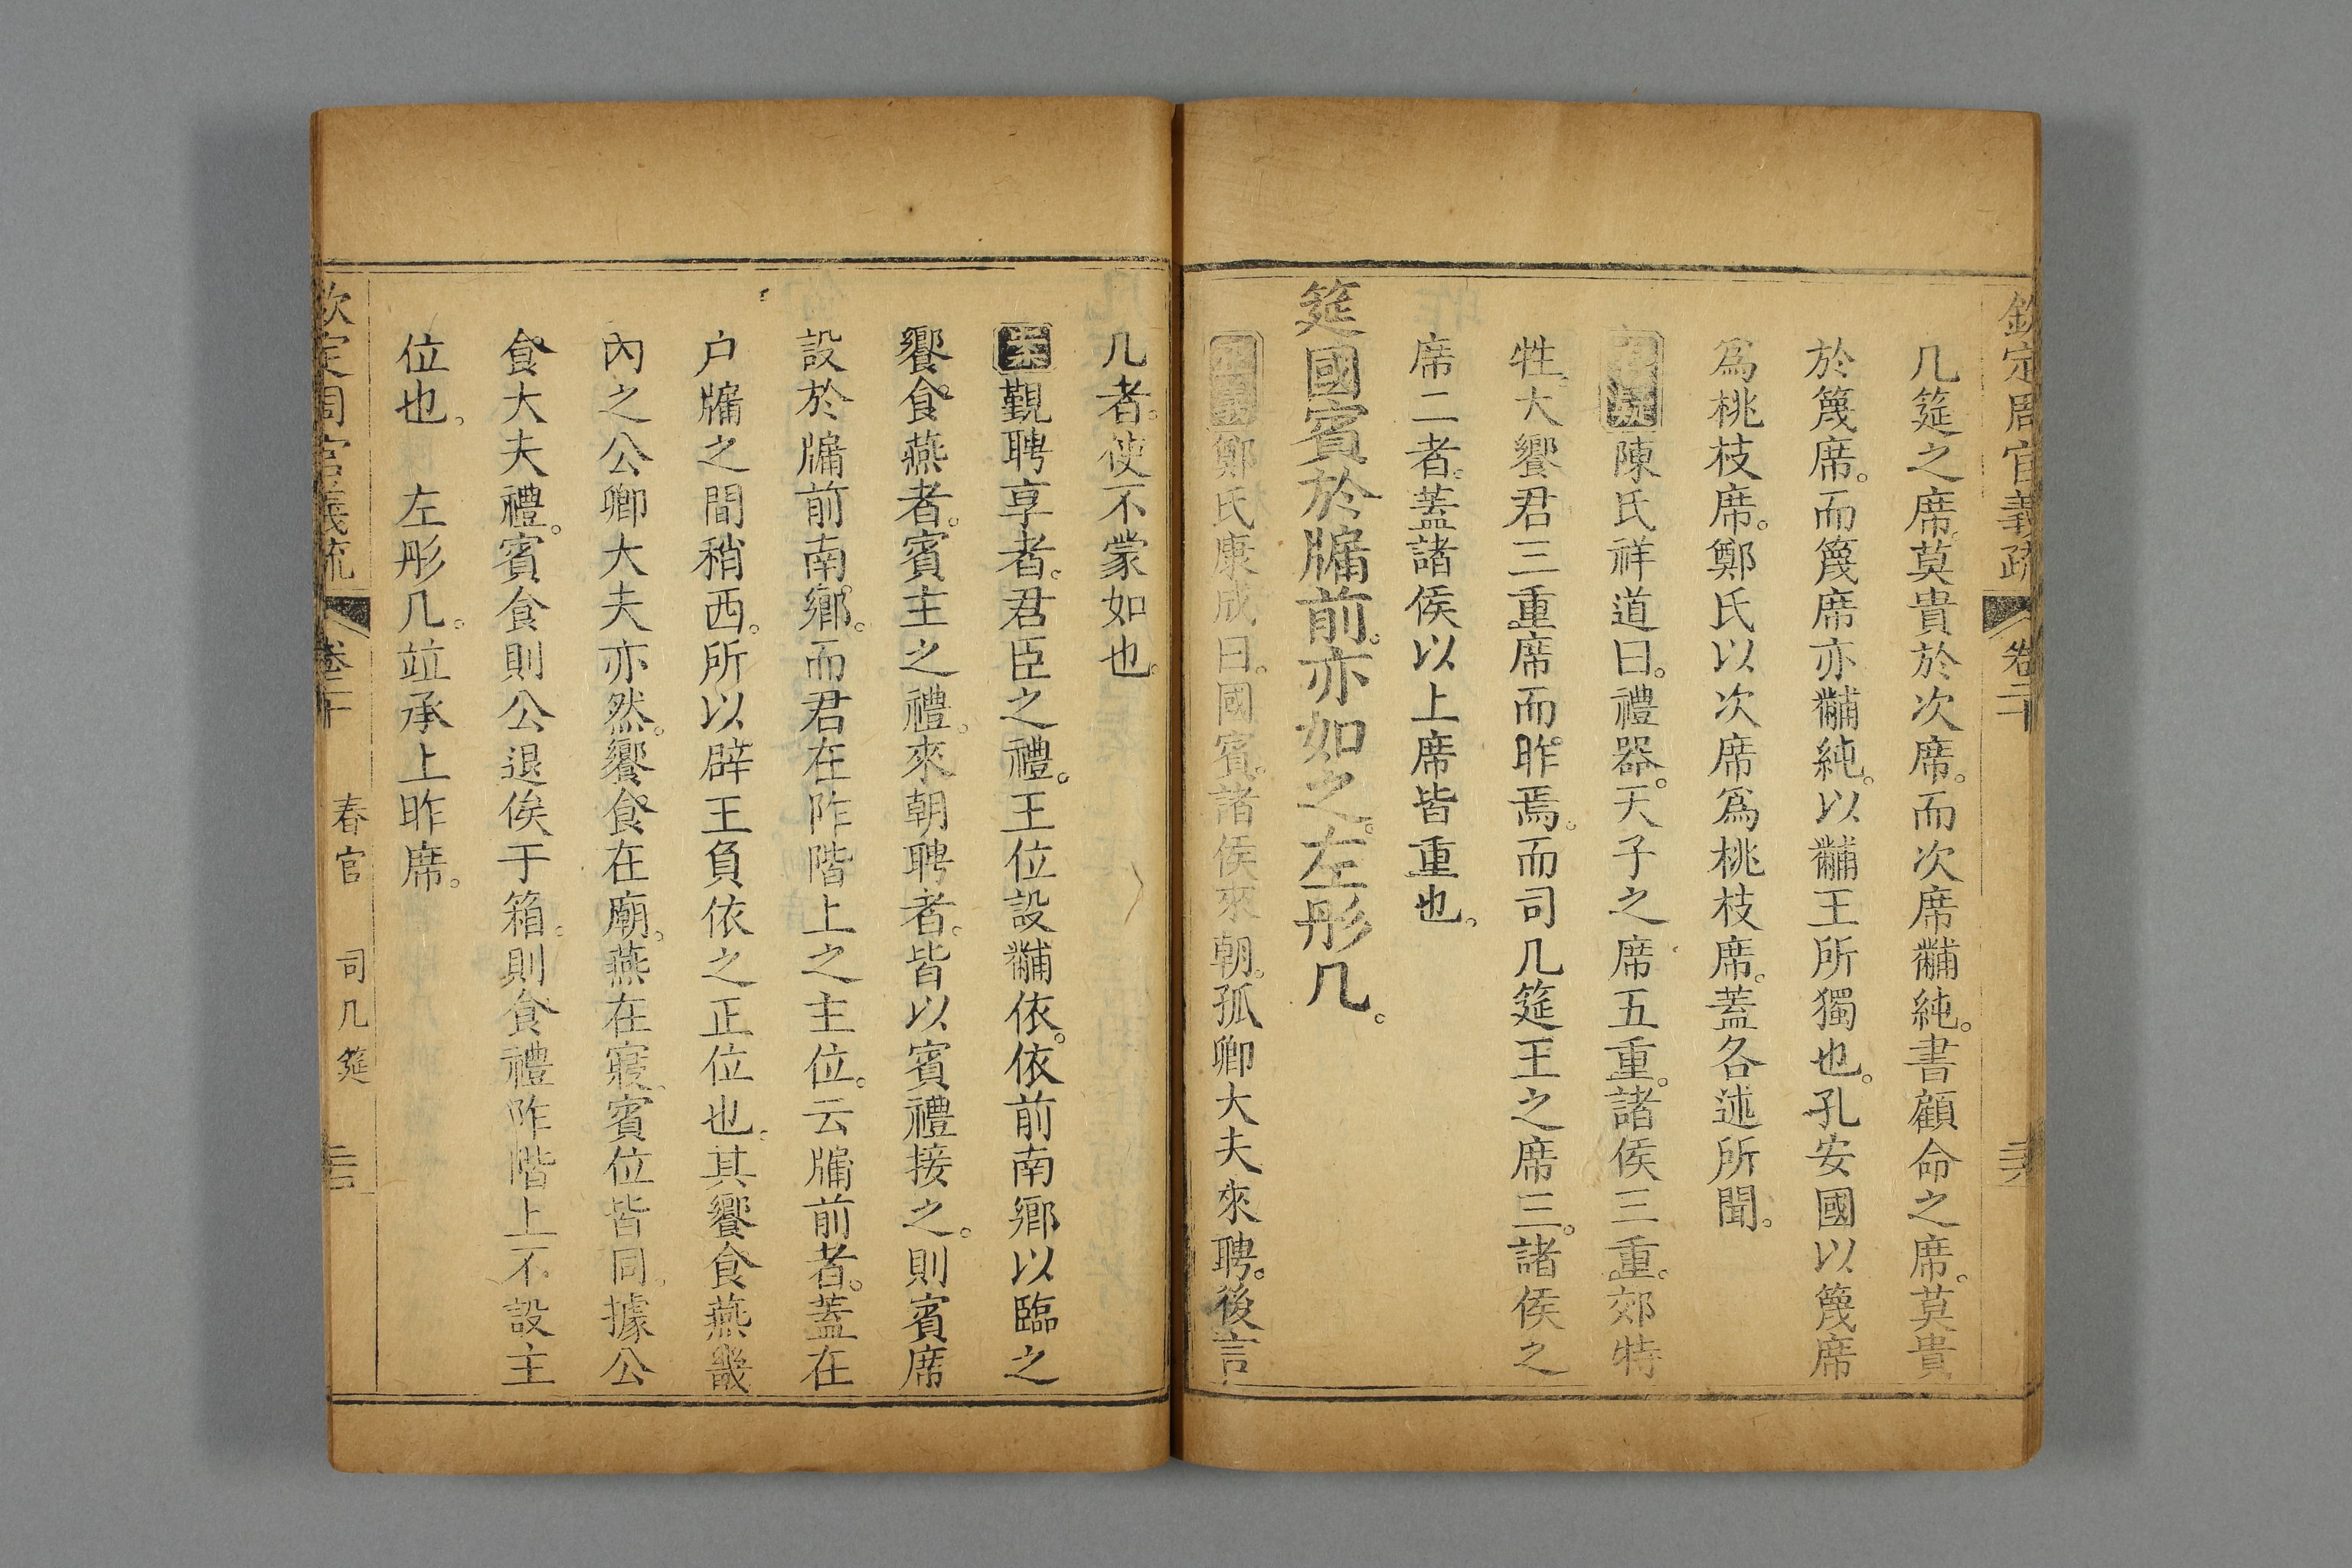 欽定周官義疏 卷二十
几筵之席。莫貴於次席。而次席黼純。書顧命之席。莫貴
於篾席。而篾席亦黼純。以黼王所獨也。孔安國以篾席
爲桃枝席。鄭氏以次席爲桃枝席。蓋各述所聞。
陳氏祥道曰。禮器。天子之席五重。諸侯三重。郊特
牲。大饗君三重席而昨焉。而司几筵王之席三。諸侯之
席二者。蓋諸侯以上席皆重也。
筵國賓於牖前。亦如之。左彤几。
正義鄭氏康成曰。國賓。諸侯來朝。孤卿大夫來聘。後言
几者。使不蒙如也。
案覲聘享者。君臣之禮。王位設黼依。依前南鄉以臨之
饗食燕者。賓主之禮。來朝聘者。皆以賓禮接之。則賓席
設於牖前南鄉。而君在阼階上之主位。云牖前者。蓋在
户牖之間稍西。所以辟王負依之正位也。其饗食燕畿
內之公卿大夫亦然。饗食在廟。燕在寢。賓位皆同。據公
食大夫禮。賓食則公退俟于箱。則食禮阼階上不設主
位也。 左彤几。竝承上昨席。
欽定周官義疏 卷二十 春官 司几筵